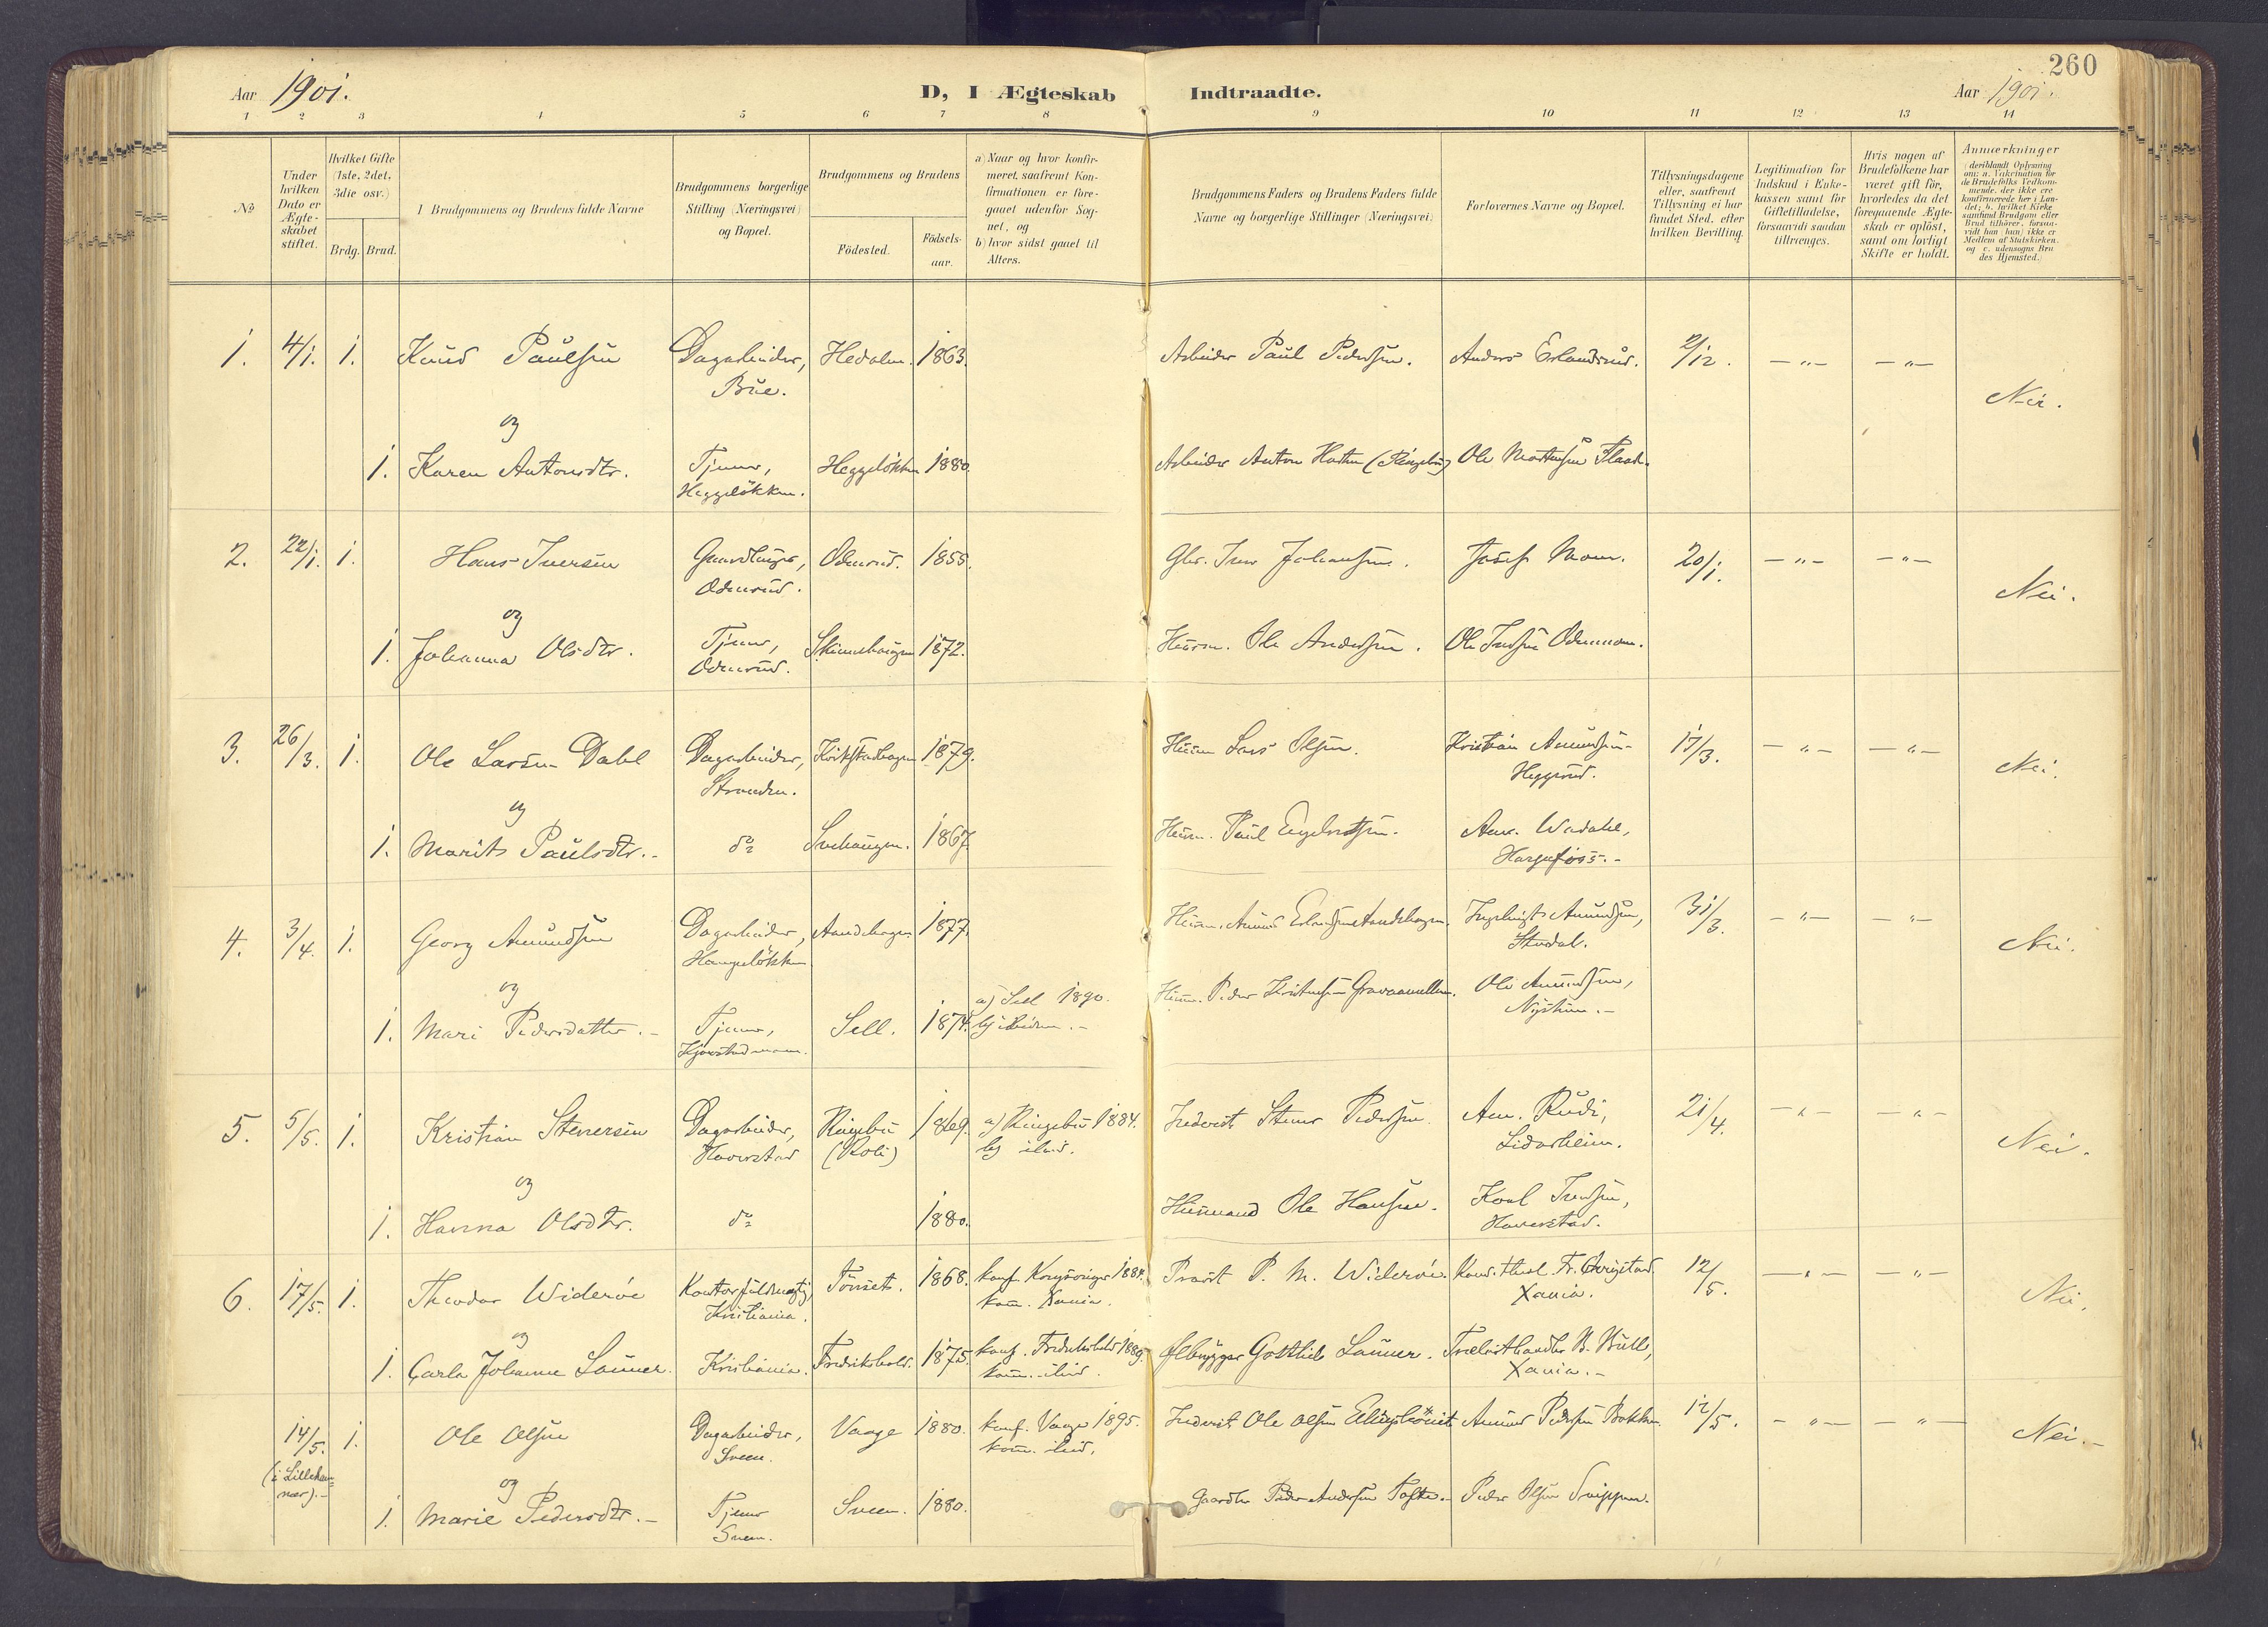 260
Aar 1901.
D, I Ægteskab Indtraadte.
Aar 1901.
1 2 3 4 5 6 7 8 9 10 11 12 13 14
No
Under hvilken Dato er Ægteskabet stiftet.
Hvilket Gifte (1ste, 2det, 3die osv.)
Brdg. Brud.
I Brudgommens og Brudens fulde Navne
Brudgommens borgerlige Stilling (Næringsvei) og Bopæl.
Brudgommens og Brudens
Födested.
Födselsaar.
a) Naar og hvor konfirmeret, saafremt Konfirmationen er foregaaet udenfor Sognet, og
b) hvor sidst gaaet til Alters.
Brudgommens Faders og Brudens Faders fulde Navne og borgerlige Stillinger (Næringsvei)
Forlovernes Navne og Bopæl.
Tillysningsdagene eller, saafremt Tillysning ei har fundet Sted, efter hvilken Bevilling.
Legitimation for Indskud i Enkekassen samt for Giftetilladelse, forsaavidt saadan tiltrænges.
Hvis nogen af Brudefolkene har været gift för, hvorledes da det foregaaende Ægteskab er oplöst, samt om lovligt Skifte er holdt.
Anmærkninger
(deriblandt Oplysning om: a. Vakcination for de Brudefolks Vedkommende, der ikke ere konfirmerede her i Landet; b. hvilket Kirkesamfund Brudgom eller Brud tilhörer, forsaavidt han (hun) ikke er Medlem af Statskirken, og c. udensogns Brudes Hjemsted.)
1. 4/1. 1. Knud Paulsen Dagarbeider, Hedalen. 1863. Arbeider Paul Pedersen. Anders Erlandsrud. 2/12. — „ — — „ —
Bue.
Nei.
og
1. Karen Antonsdtr. Tjener, Heggeløkken 1880. Arbeider Anton (Ringebu) Ole Mortensen
Heggeløkken.
2. 22/1. 1. Hans Iversen Gaardbruger, Odenrud. 1855. Gbr. Iver Johansen. Josef Moen. 20/1. — „ — — „ —
Odenrud.
Nei.
og
1. Johanna Olsdtr. Tjener, 1872. Husm. Ole Andersen. Ole Iversen
Odenrud.
3. 26/3. 1. Ole Larsen Dahl Dagarbeider, 1879. Husm Lars Olsen. Kristian Amundsen 17/3. — „ — — „ —
Stranden. Heggerud.
Nei.
og
1. Marit Paulsdtr. do Svehaugen. 1867. Husm. Paul Engebretsen. Am. Wadahl,
Harpefoss.
4. 3/4. 1. Georg Amundsen Dagarbeider, 1877. Husm. Amund Ingebrigt Amundsen, 31/3. — „ — — „ —
Stordal.
Nei.
og
a) Sell 1890. Husm. Peder Ole Amundsen,
1. Mari Pedersdatter. Tjener, Sell. 1874. b) ibidem. Nystuen.
5. 5/5. 1. Kristian Stenersen Dagarbeider, Ringebu 1869. a) Ringebu 1884. Inderst Stener Pedersen Am. Rudi, 21/4. — „ — — „ —
Haverstad (Roli) b) ibid. Lidarheim.
Nei.
og
1. Hanna Olsdtr. do 1880. Husmand Ole Hansen. Karl Iversen,
Haverstad.
6. 17/5. 1. Theodor Widerøe Kontorfuldmægtig, Tönset. 1868. konf. Kongsvinger 1884. Provst P. M. Widerøe. Kand. theol. Fr. 12/5. — „ — — „ —
Kristiania. kom. Xania. Xania.
Nei.
og
1. Carla Johanne Sanner. Kristiania. Fredrikshald. 1875. konf. Fredrikshald 1889. Ølbrygger Gotthilf Sanner. Trælasthandler B. Bull,
kom. ibid. Xania.
14/5. 1. Ole Olsen Dagarbeider, Vaage 1880. konf. Vaage 1895. Inderst Ole Olsen Amund Pedersen Bakken 12/5. — „ — — „ —
Sveen. kom. ibid.
Nei.
(i Lillehammer).
og
1. Marie Pedersdtr. Tjener Sveen. 1880. Gaardbr Peder Andersen Tofte. Peder Olsen
Sveen.